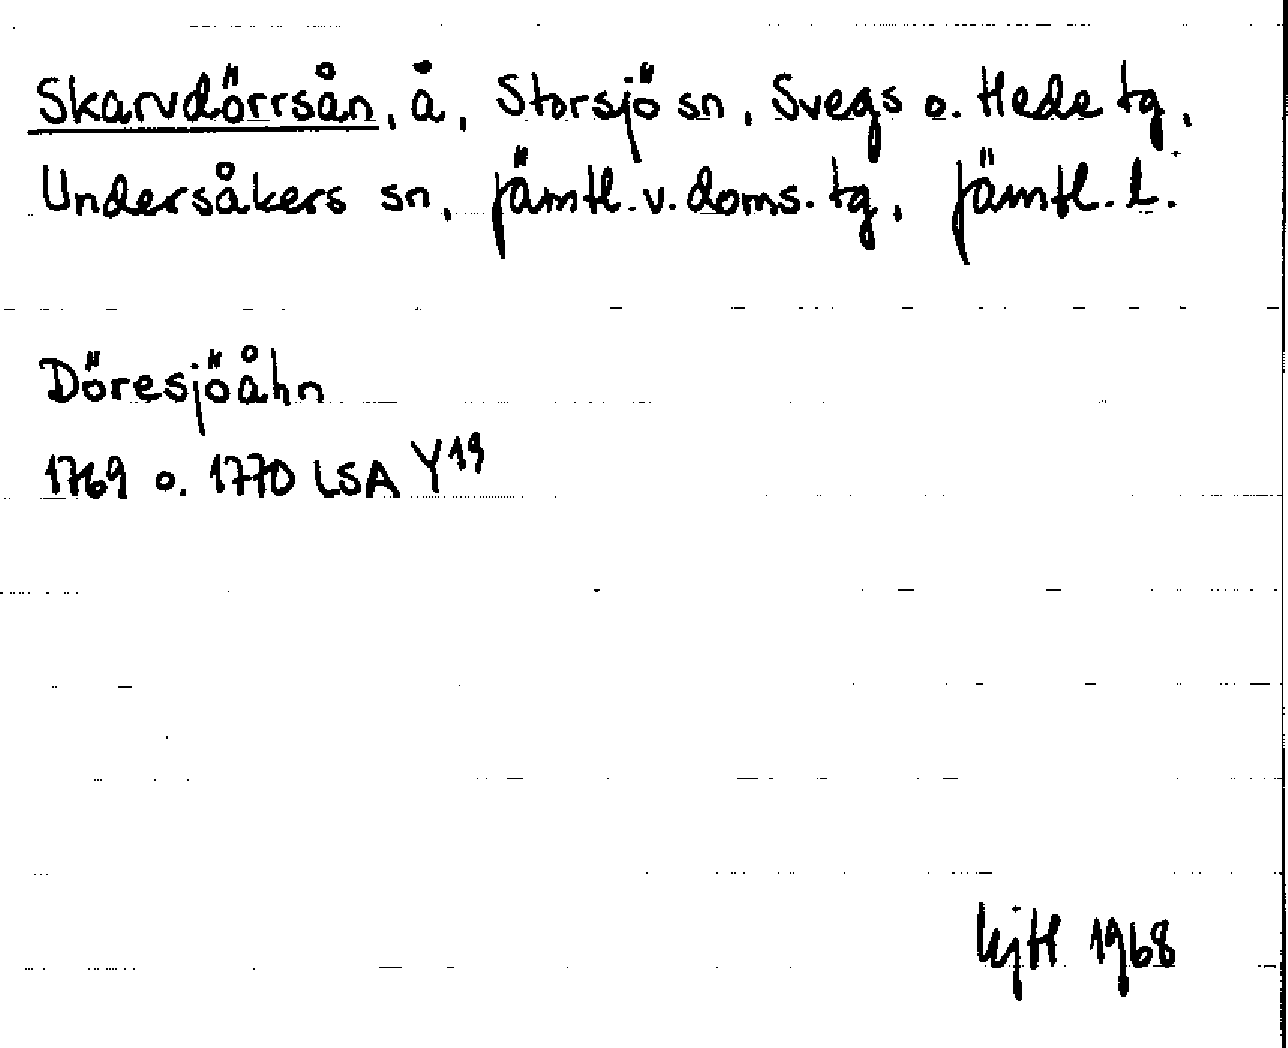 Skarvdörrsån, å, Storsjö sn, Svegs o. Hede tg,
Undersåkers sn, Jämtl. v. doms. tg, Jämtl. l.
Döresjöåhn
1769 o. 1770 LSA Y19
1968